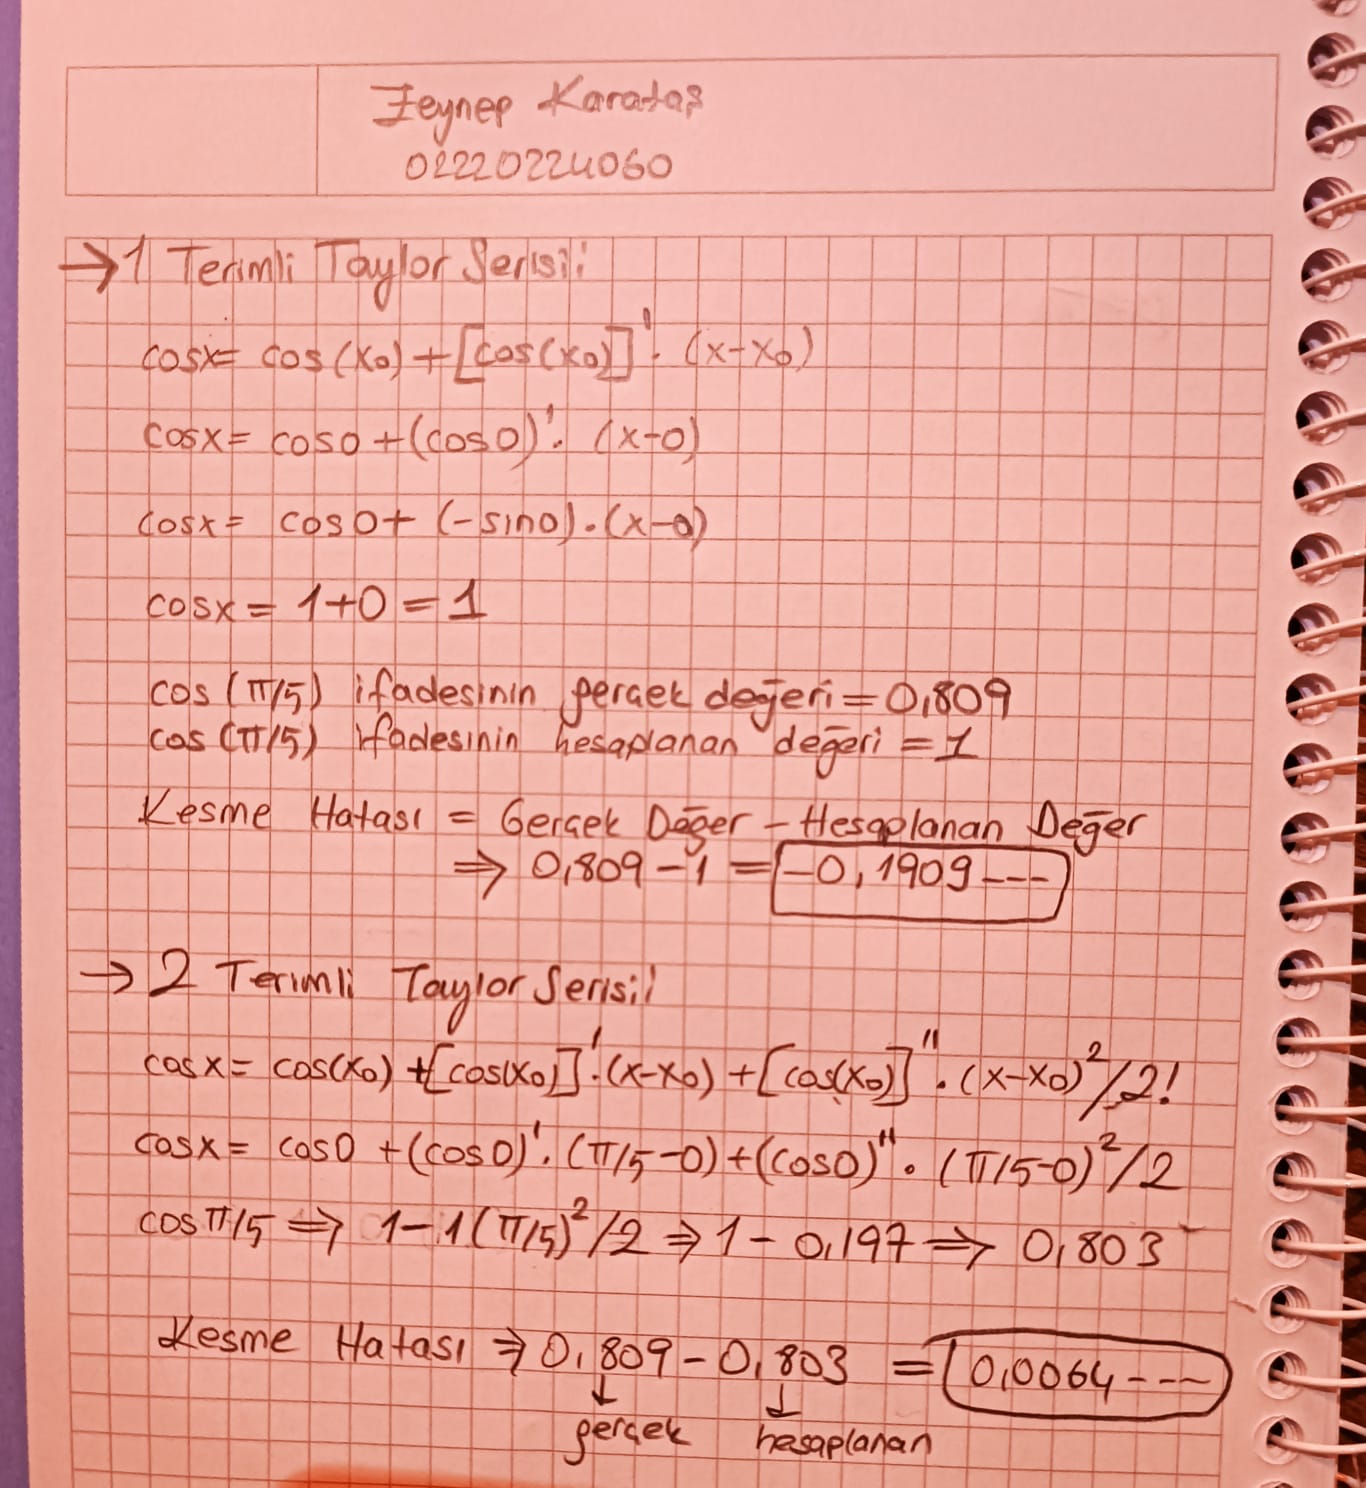 Zeynep Karataş
02220224060
→1 Terimli Taylor Serisi:
cosx= cos(x₀)+[cos(x₀)]'. (x-x₀)
cosx= cos0+(cos0)'. (x-0)
cosx= cos0+ (-sin0).(x-0)
cosx= 1+0=1
cos(π/5) ifadesinin gerçek değeri=0,809
cos(π/5) ifadesinin hesaplanan değeri=1
Kesme Hatası = Gerçek Değer - Hesaplanan Değer
⇒ 0,809-1 = -0,1909---
→2 Terimli Taylor Serisi!
cosx= cos(x₀) +[cos(x₀)]'.(x-x₀)+[cos(x₀)]''.(x-x₀)²/2!
cosx= cos0 +(cos0)'.(π/5-0)+(cos0)''.(π/5-0)²/2
cosπ/5 ⇒ 1-1(π/5)²/2 ⇒ 1-0,197 ⇒ 0,803
Kesme Hatası ⇒ 0,809-0,803 = 0,0064---
↓ ↓
gerçek hesaplanan